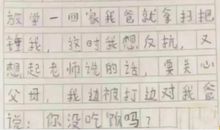 放学一回家我爸就拿扫把
锤我，这时我想反抗，又
想起老师说的话，要关心
父母，我边被打边对我爸
说：你没吃饭吗？